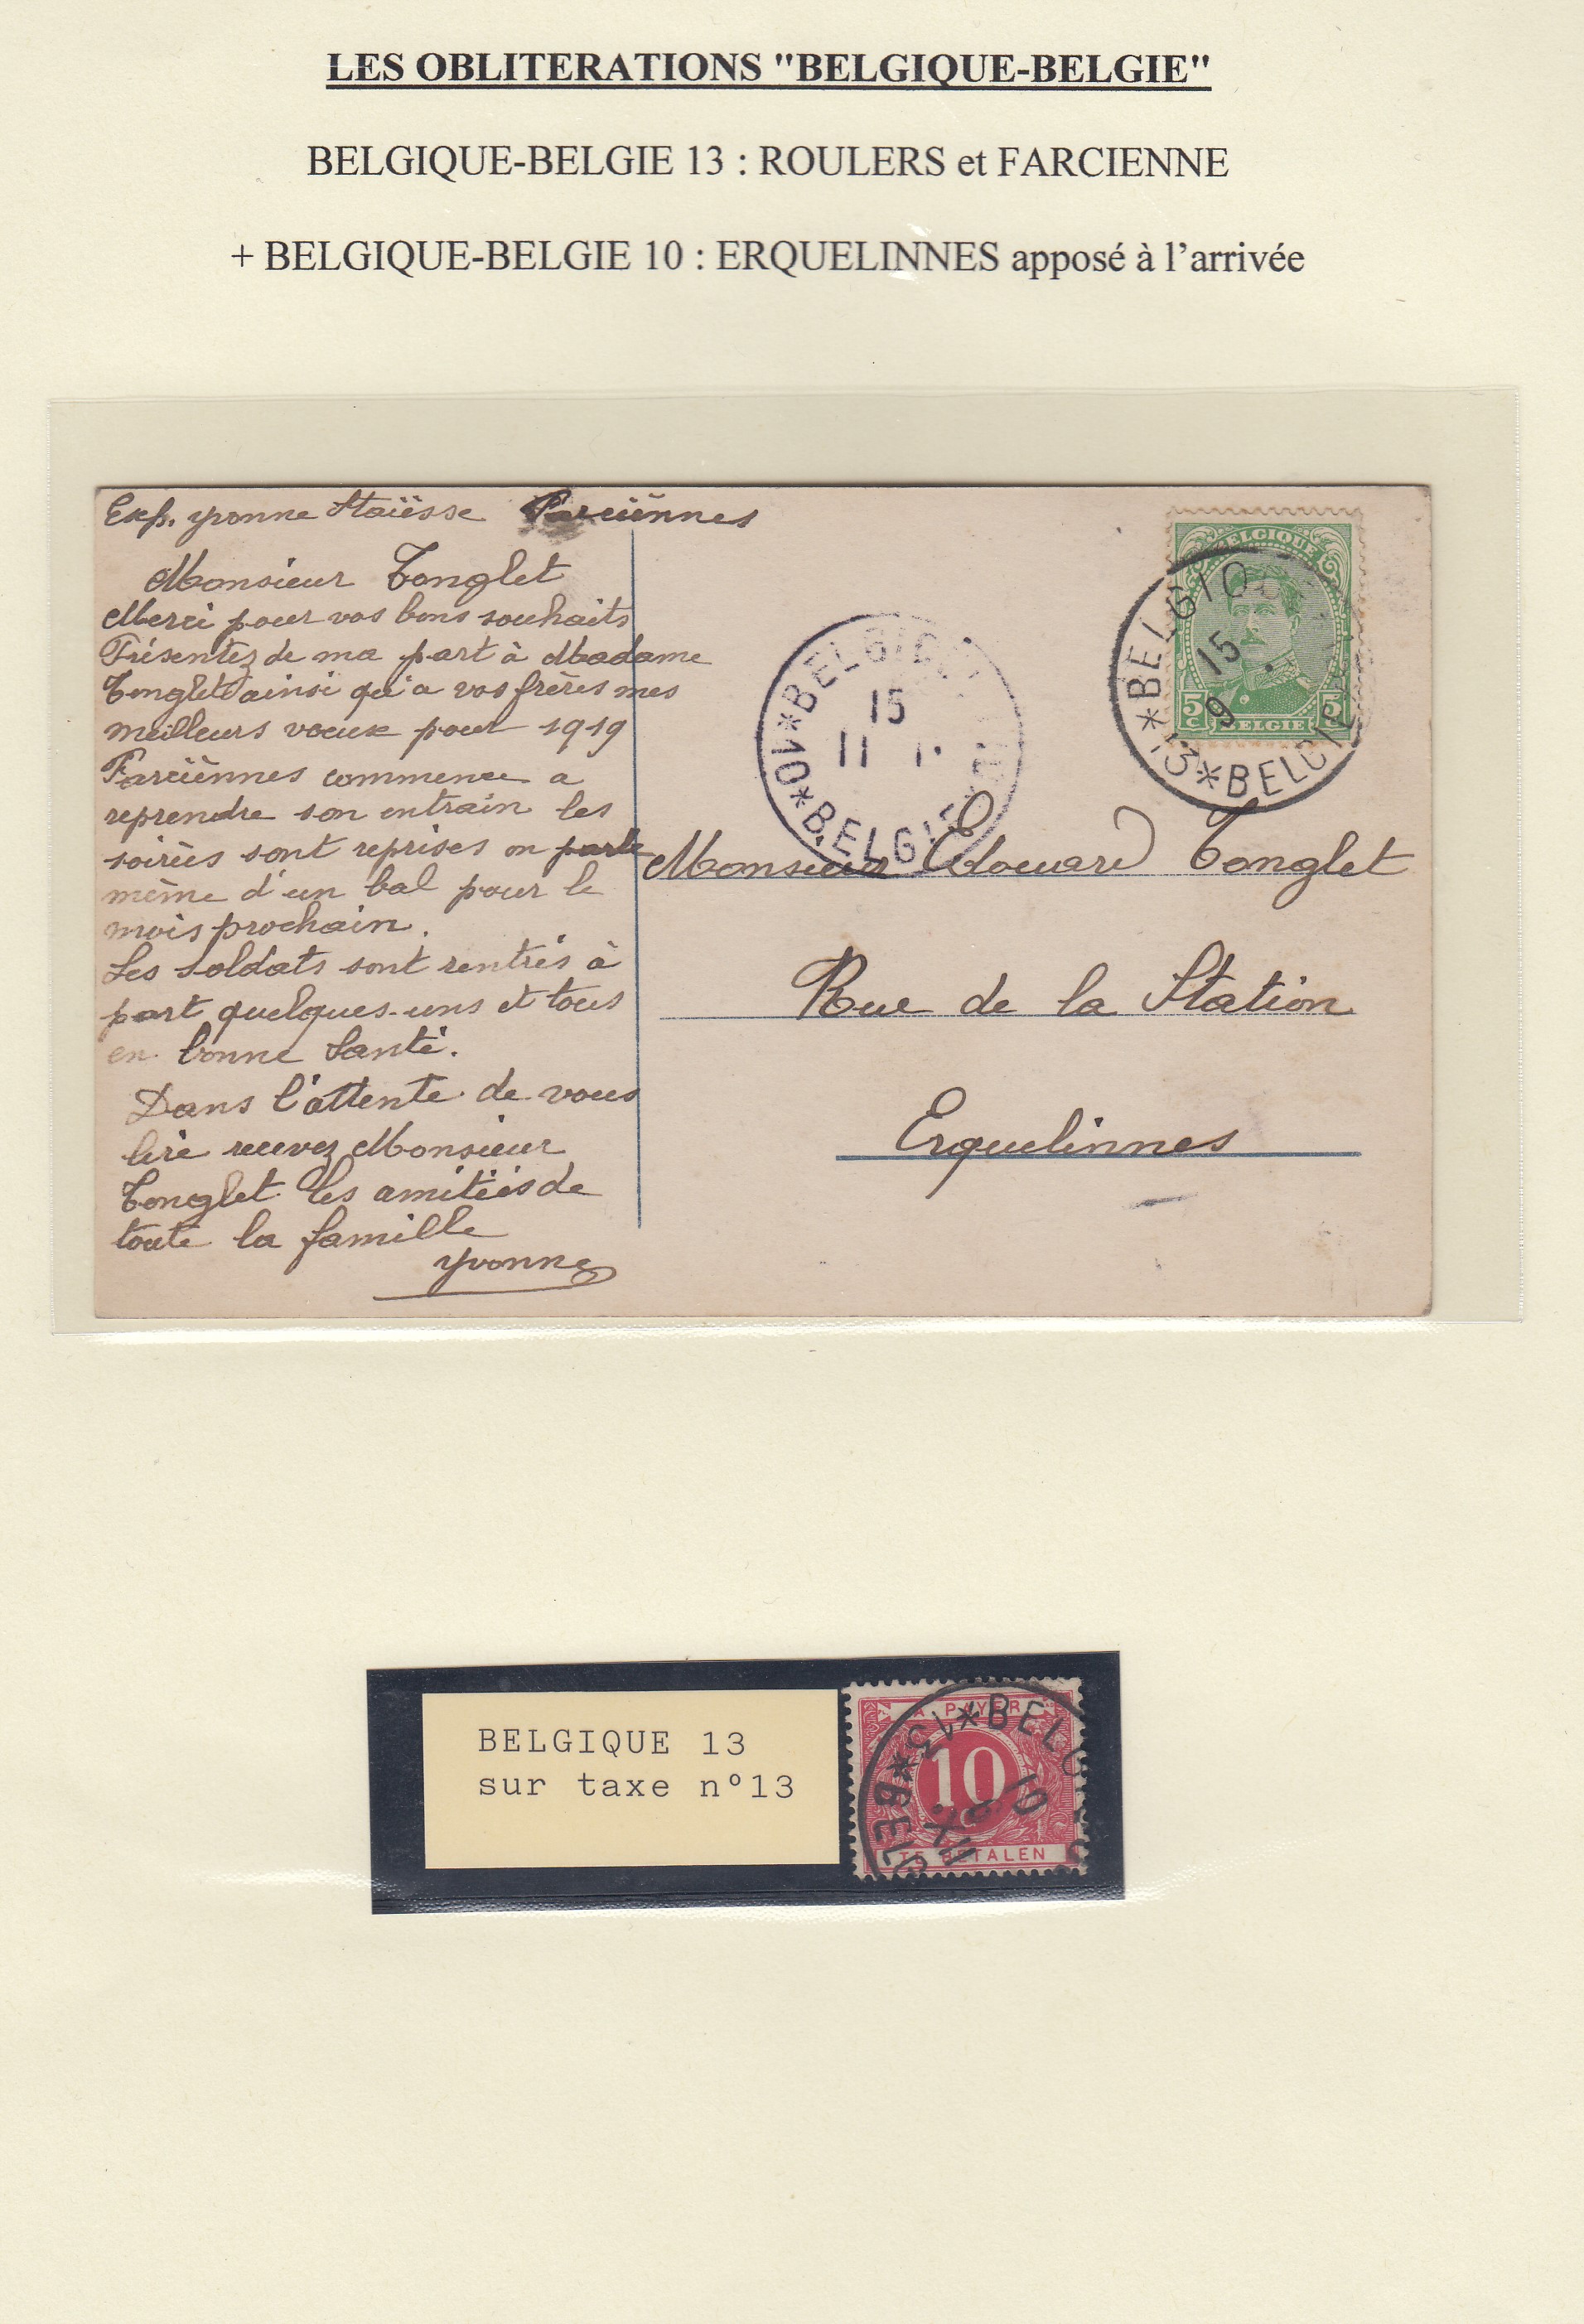 LES OBLITERATIONS "BELGIQUE-BELGIE"
BELGIQUE-BELGIE 13 : ROULERS et FARCIENNE
+ BELGIQUE-BELGIE 10 : ERQUELINNES apposé à l'arrivée
Exp. yvonne Farciennes
Monsieur Tonglet
Merci pour vos bons souhaits
Présentez de ma part à Madame
Tonglet ainsi qu'a vos frères mes
meilleurs voeux pour 1919
Farciennes commence a
reprendre son entrain les
soirées sont reprises on parle
même d'un bal pour le
mois prochain.
Les soldats sont rentrés à
part quelques-uns et tous
en bonne Santé.
Dans l'attente de vous
lire recevez Monsieur
Tonglet les amitiés de
toute la famille
yvonne
BELGIQUE
5c 5c
BELGIE
*BELGIQ
15
9
13*BELGIE
*BELGIQ
15
11 I.
10*BELGIE
Monsieur Edouard Tonglet
Rue de la Station
Erquelinnes
BELGIQUE 13
sur taxe nº13
A PAYER
10
TE BETALEN
13*BELG
10
XII
*BELG